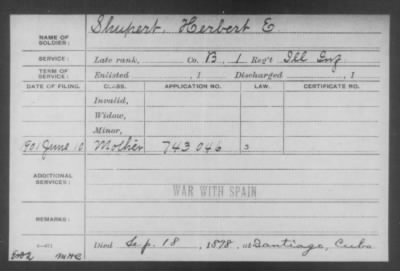 NAME OF SOLDIER: Shupert, Herbert E
SERVICE: Late rank, Co. B, 1 Reg't Ill Inf
TERM OF SERVICE: Enlisted , 1 Discharged , 1
DATE OF FILING. CLASS. APPLICATION NO. LAW. CERTIFICATE NO.
Invalid,
Widow,
Minor,
1901 June 10 Mother 743046 S
ADDITIONAL SERVICES:
WAR WITH SPAIN
REMARKS:
Died Sep. 18, 1898, at Santiago, Cuba